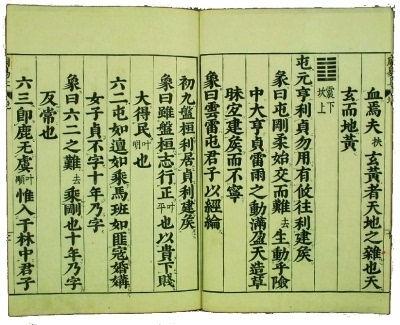 血焉夫扶玄黃者天地之雜也天
玄而地黃
䷂震下坎上
屯元亨利貞勿用有攸往利建矦
彖曰屯剛柔始交而難去生動乎險
中大亨貞雷雨之動滿盈天造草
昧宜建矦而不寧
象曰雲雷屯君子以經綸
初九盤桓利居貞利建矦
象曰雖盤桓志行正叶平也以貴下賤
大得民叶也
六二屯如邅如乘馬班如匪寇婚媾
女子貞不字十年乃字
象曰六二之難去乘剛也十年乃字
反常也
六三卽鹿无虞叶惟入于林中君子